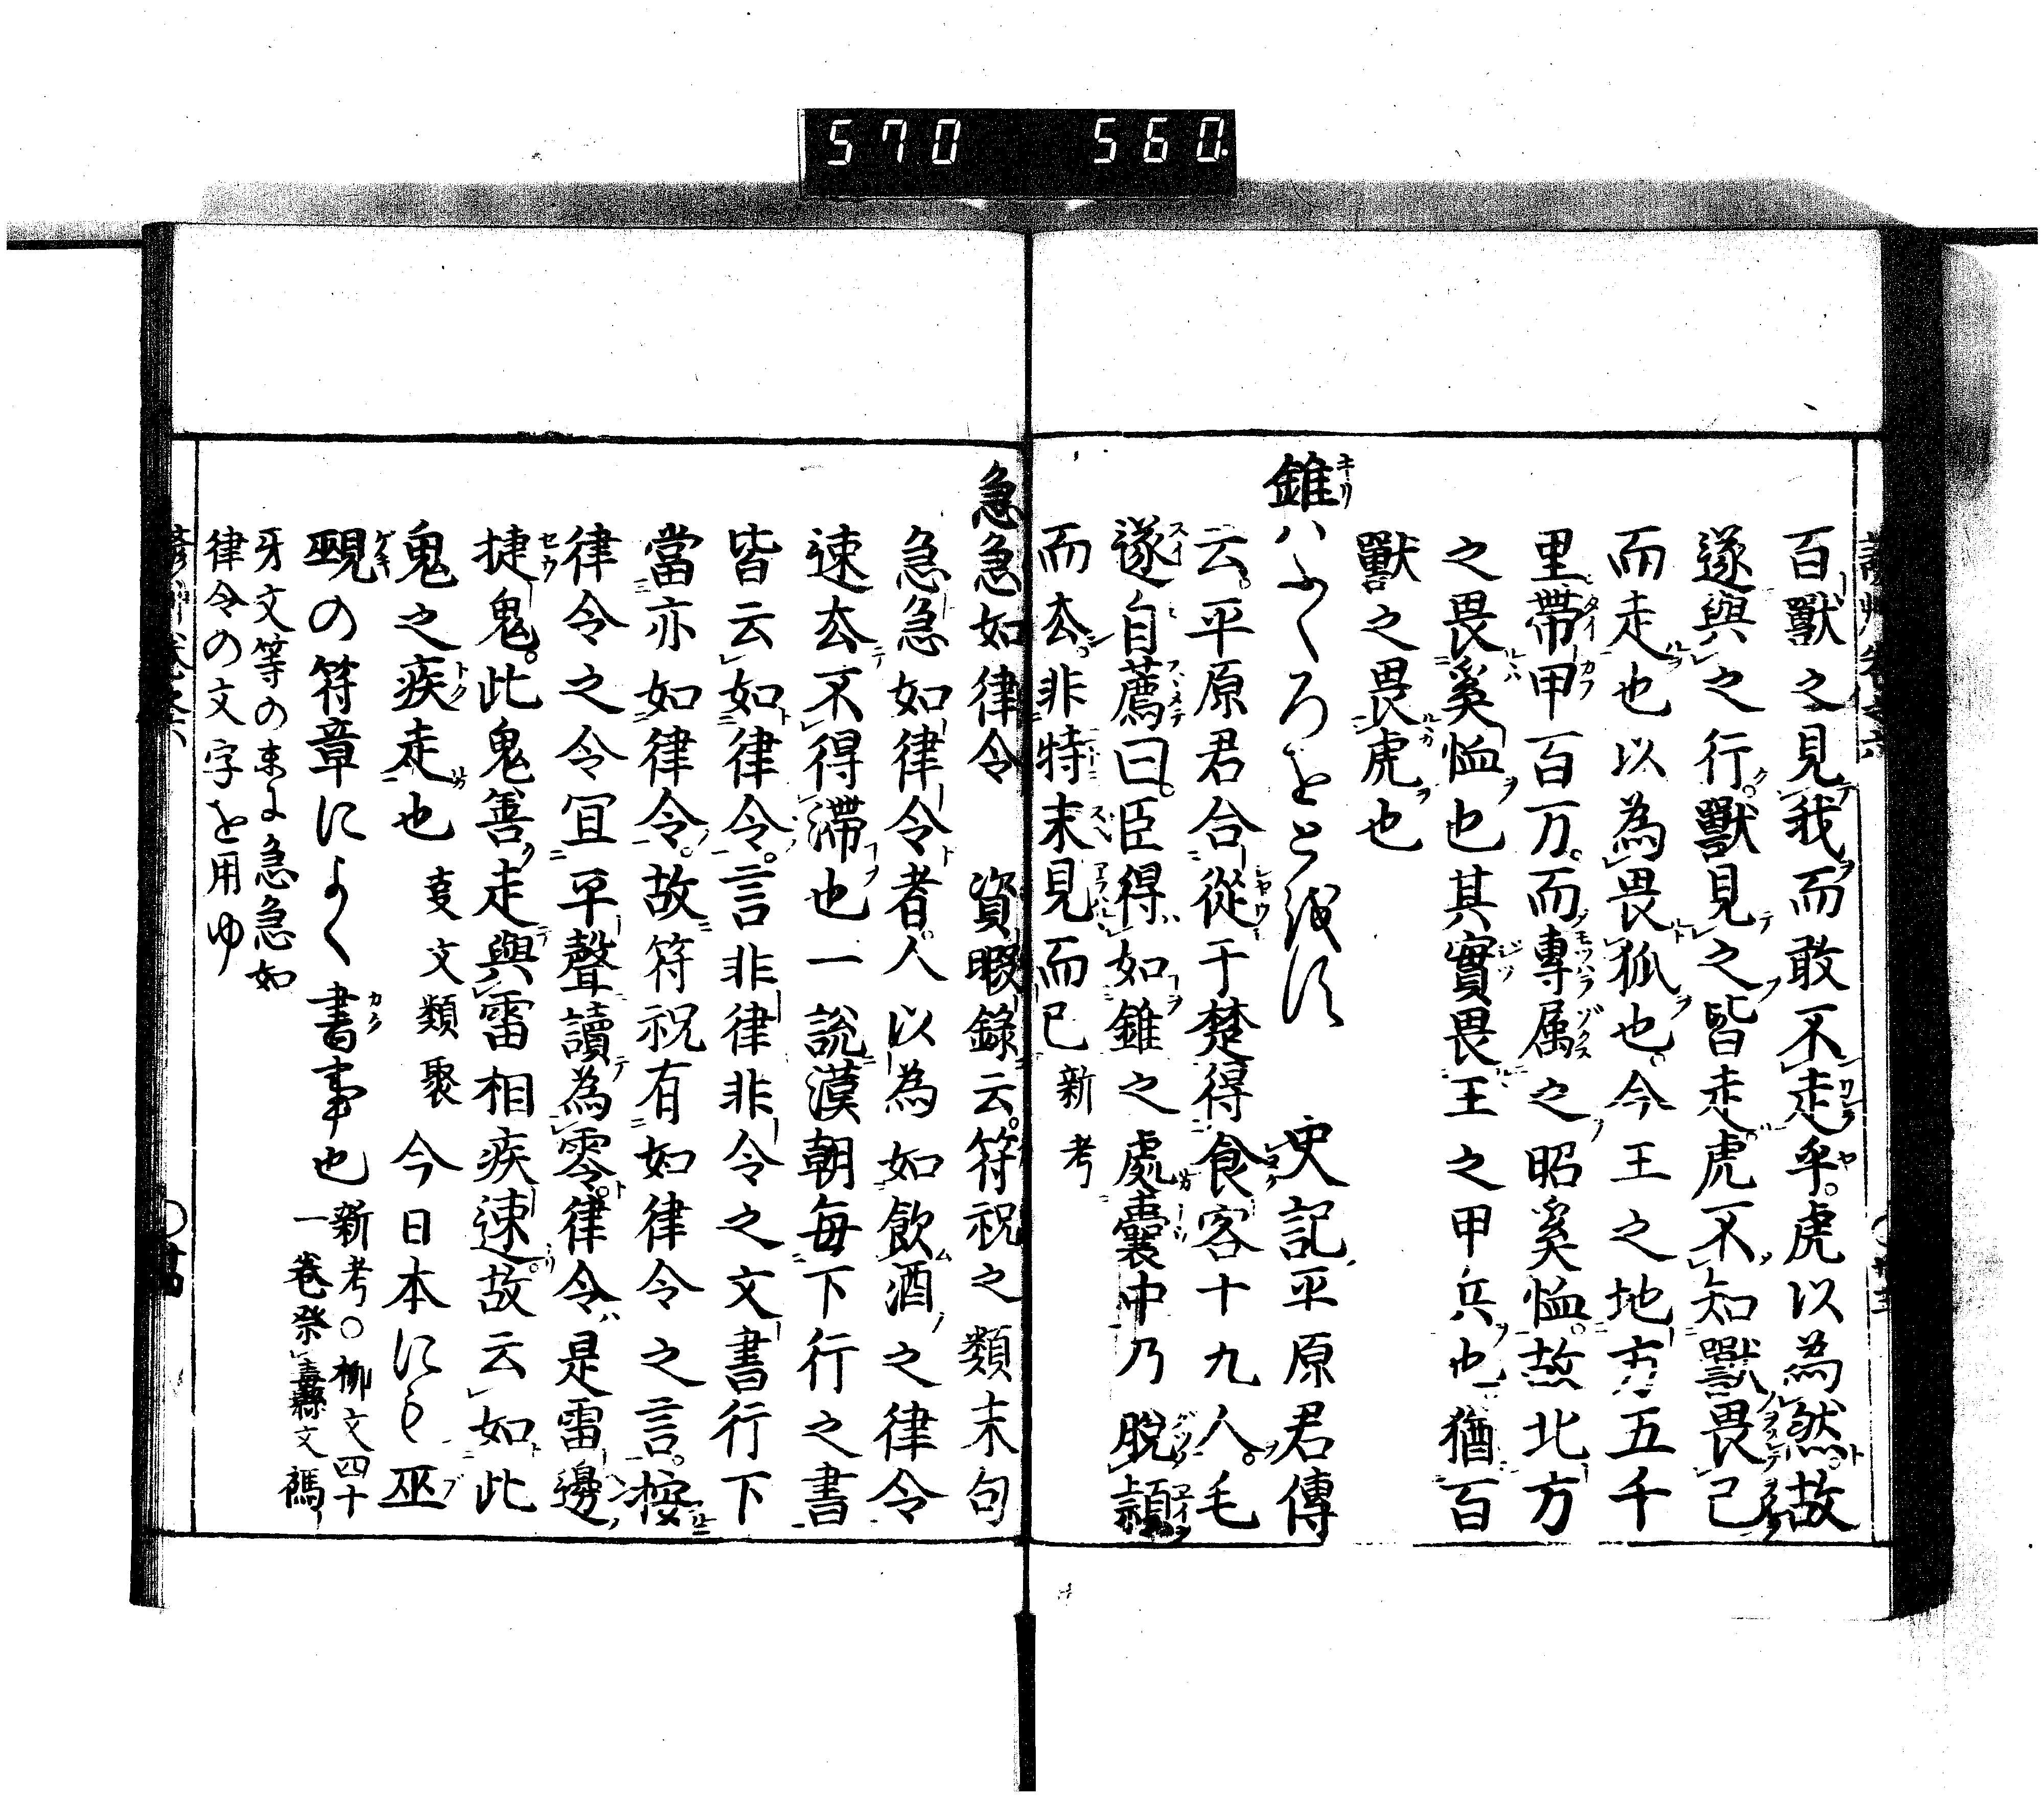 570 560.
百獸之見我而敢不走乎。虎以為然。故
遂與之行。獸見之皆走。虎不知獸畏己
而走也以為畏狐也。今王之地方五千
里帶甲百万。而專属之昭奚恤。故北方
之畏奚恤也其實畏王之甲兵也猶百
獸之畏虎也
錐ハふくろをとほす 史記平原君傳
云。平原君合從于楚得食客十九人。毛
遂自薦曰。臣得如錐之處囊中乃脫穎
而去。非特末見而已 新考
急急如律令 資暇錄云。符祝之類末句
急急如律令者。人以為如飲酒之律令
速去不得滯也一說漢朝每下行之書
皆云如律令。言非律非令之文書行下
當亦如律令。故符祝有如律令之言。按
律令之令宜平聲讀為零。律令ハ是雷邊
捷鬼。此鬼善走與雷相疾速。故云如此
鬼之疾走也 事文類聚 今日本にも巫
覡の符章によく書事也 新考○柳文四十
一卷祭纛文禡
牙文等の末に急急如
律令の文字を用ゆ